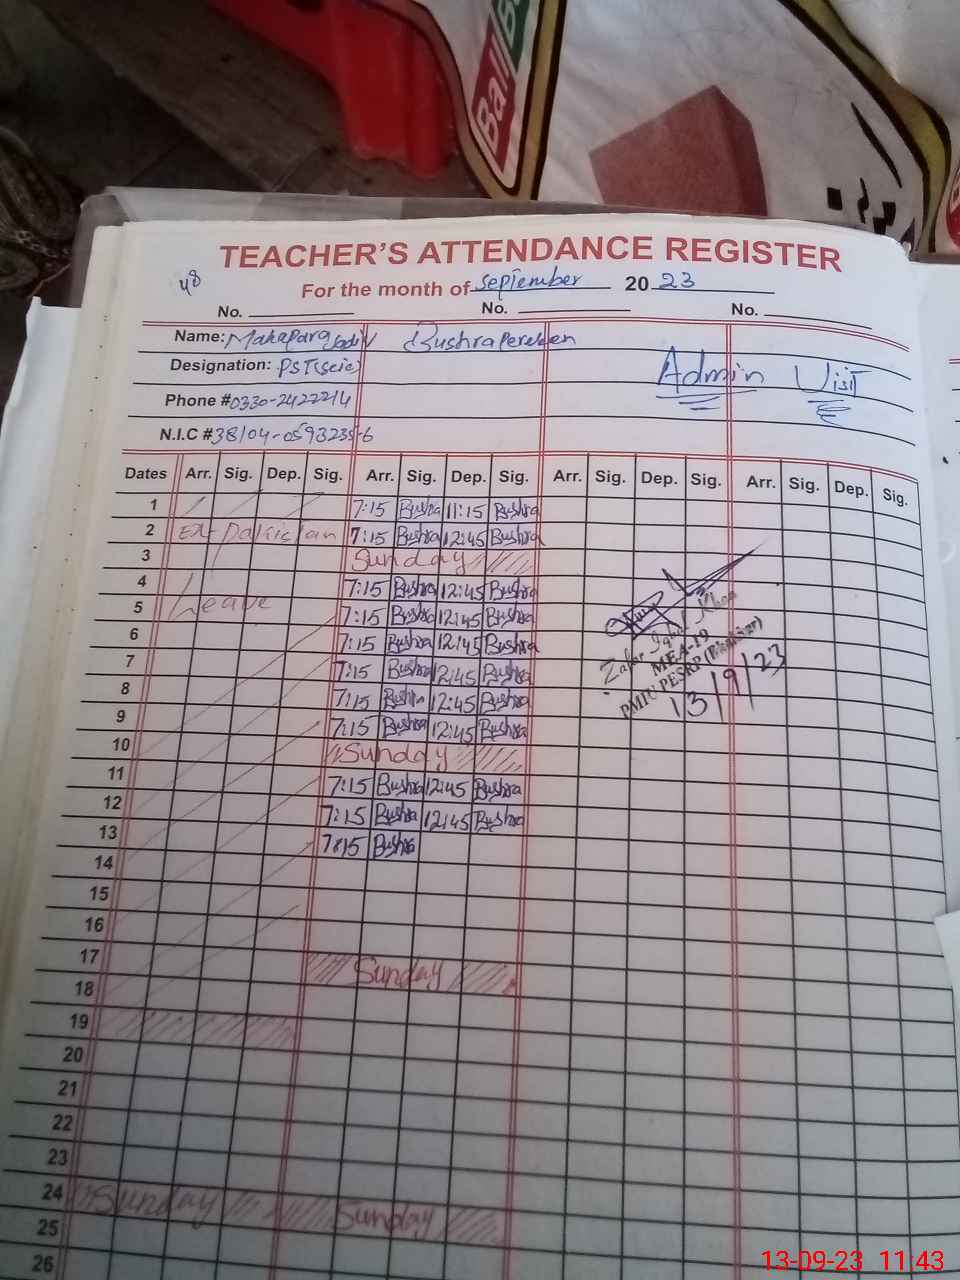 Ball
TEACHER'S ATTENDANCE REGISTER
48
For the month of September 2023
No. No. No.
Name: Mahapara Bushra Perveen
Designation: PST(Scie)
Admin Visit
Phone #0330-2422214
N.I.C #38104-0593235-6
Dates Arr. Sig. Dep. Sig. Arr. Sig. Dep. Sig. Arr. Sig. Dep. Sig. Arr. Sig. Dep. Sig.
1 7:15 Bushra 11:15 Bushra
2 Ex-Pakistan 7:15 Bushra 12:45 Bushra
3 Sunday
4 7:15 Bushra 12:45 Bushra
5 Leave 7:15 Bushra 12:45 Bushra
6 7:15 Bushra 12:45 Bushra
7 7:15 Bushra 12:45 Bushra
8 7:15 Bushra 12:45 Bushra
9 7:15 Bushra 12:45 Bushra
10 Sunday
11 7:15 Bushra 12:45 Bushra
12 7:15 Bushra 12:45 Bushra
13 7:15 Bushra
14
15
16
17 Sunday
18
19
20
21
22
23
24 Sunday Sunday
25
26
Zafar Iqbal Khan
MEA-19
PMIU PESRP
13/9/23
13-09-23 11:43